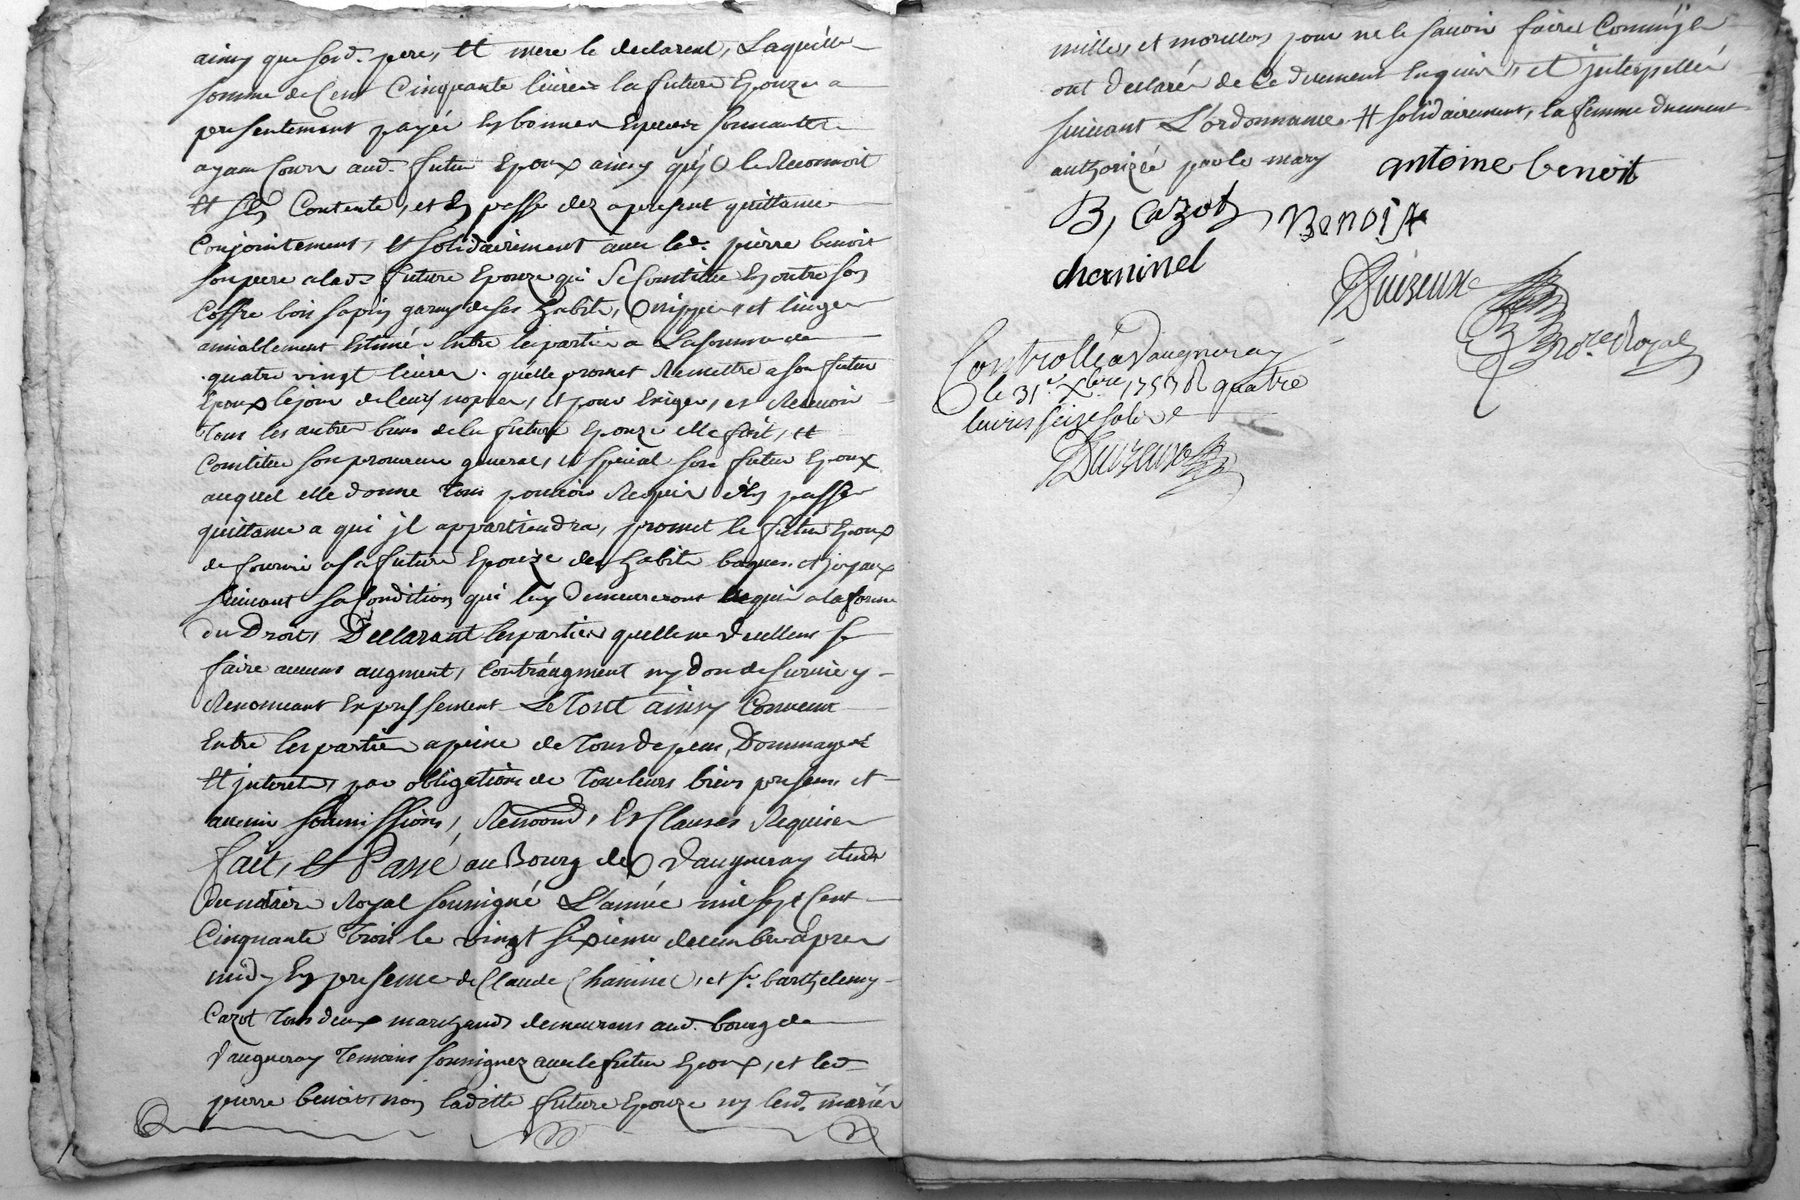 ainsy que sesd. pere, et mere le declarent, Laquelle
somme de Cent Cinquante livres la future Epouze a
presentement payée En bonnes Especes sonnantes
ayant Cours aud. futur Epoux ainsy qu'jl le Reconnoit
et s'En Contente, et En passe dez apresent quittance
Conjointement, et solidairement avec led. pierre benoit
son pere a lad. future Epouze qui se Constitue En outre son
Coffre bois sapin garny de ses habits, nippes, et linges
amiablement Estimé Entre les parties a La somme de
quatre vingt livres. quelle promet Remettre a son futur
Epoux le jour de leurs nopces, et pour Exiger, et Recevoir
Tous les autres biens de la future Epouze elle fait, et
Constitue son procureur general, et special son futur Epoux
auquel elle donne Tous pouvoirs Requis d'En passer
quittance a qui jl appartiendra, promet le futur Epoux
de fournir a sa future Epouze des habits bagues et joyaux
suivant sa Condition qui luy demeureront acquis a la forme
du Droit, Declarant les parties quelle ne veullent se
faire aucuns augment, Contraugment ny don de survie y
Renonceant Expressement Le Tout ainsy Convenu
Entre les parties a peine de Tous depens, Dommages
et jnterets, par obligations de Tous leurs biens presens et
avenir soumissions, Renoond, Et Clauses Requises
fait, et Passé au Bourg de Vaugneray etude
du notaire Royal soussigné L'année mil sept Cent
Cinquante Trois le vingt sixieme decembre apres
midy En presence de Claude Chaninel, et sr. barthelemy
Cazot Tous deux marchands demeurans aud. bourg de
Vaugneray Temoins soussignez avec le futur Epoux, et led.
pierre benoit, non laditte future Epouze ny lesd. mariés
mille, et morellon pour ne le savoir faire Comme jls
ont declaré de Ce duement Enquis, et jnterpellé
suivant L'ordonnance. # solidairement, la femme duement
authorizée par le mary antoine benoit
B, Cazot, Benoist
chaninel
Duizeux
Nore. Royal
Controllé a Vaugneray
le 31e. Xbre 1753 R quatre
livres seize sols
Duizeux